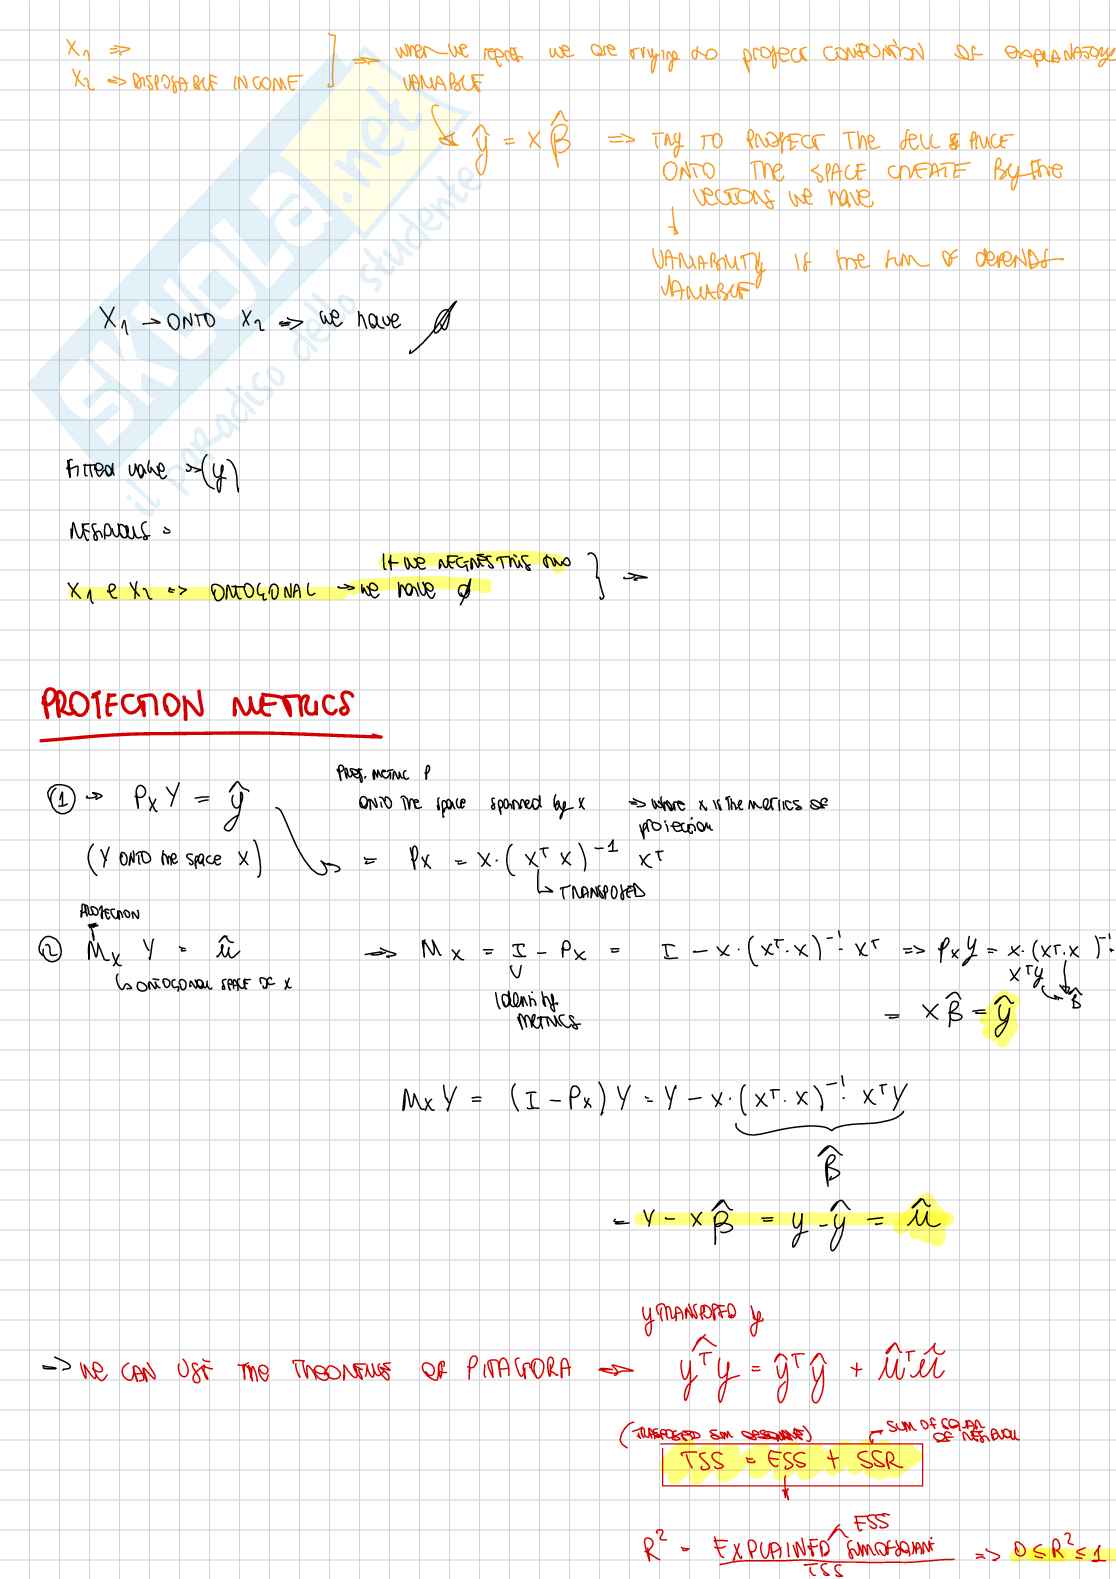 X₁ ⇒
X₂ ⇒ DISPOSABLE INCOME
⇒ when we we are trying to project COMBINATION OF EXPLANATORY
VARIABLE
ŷ = X β̂ ⇒ TRY TO PROJECT THE
ONTO THE SPACE CREATE By the
VECTORS we have
VARIABILITY IF the OF DEPENDS
VARIABLE
X₁ → ONTO X₂ ⇒ we have ∅
SKUOLA.net
il paradiso dello studente
FITTED value ⇒ (y)
RESIDUALS =
If we REGRESS THIS two
X₁ e X₂ => ORTOGONAL → we have ∅ } ⇒
PROJECTION METRICS
① → Pₓ Y = ŷ
(Y ONTO the space X)
PROJ. METRIC P
ONTO The space spanned by x ⇒ where x is The metrics of
projection
= Pₓ = X·(Xᵀ X)⁻¹ Xᵀ
↳ TRANSPOSED
PROJECTION
② Mₓ Y = û
↳ ORTOGONAL SPACE OF X
→ Mₓ = I - Pₓ = I - X·(Xᵀ·X)⁻¹· Xᵀ => PₓY = X·(Xᵀ·X)⁻¹·
XᵀY
β̂
Identity
METRICS
= X β̂ = ŷ
MₓY = (I - Pₓ) Y = Y - X·(Xᵀ·X)⁻¹· XᵀY
β̂
= Y - X β̂ = y - ŷ = û
y TRANSPOSED y
-> WE CAN USE THE OF PITAGORA ⇒ yᵀy = ŷᵀŷ + ûᵀû
(TRASPOSED SUM)
SUM OF SQUAR
OF RESIDUAL
TSS = ESS + SSR
ESS
R² = EXPLAINED SUM OF SQUARE => 0 ≤ R² ≤ 1
TSS